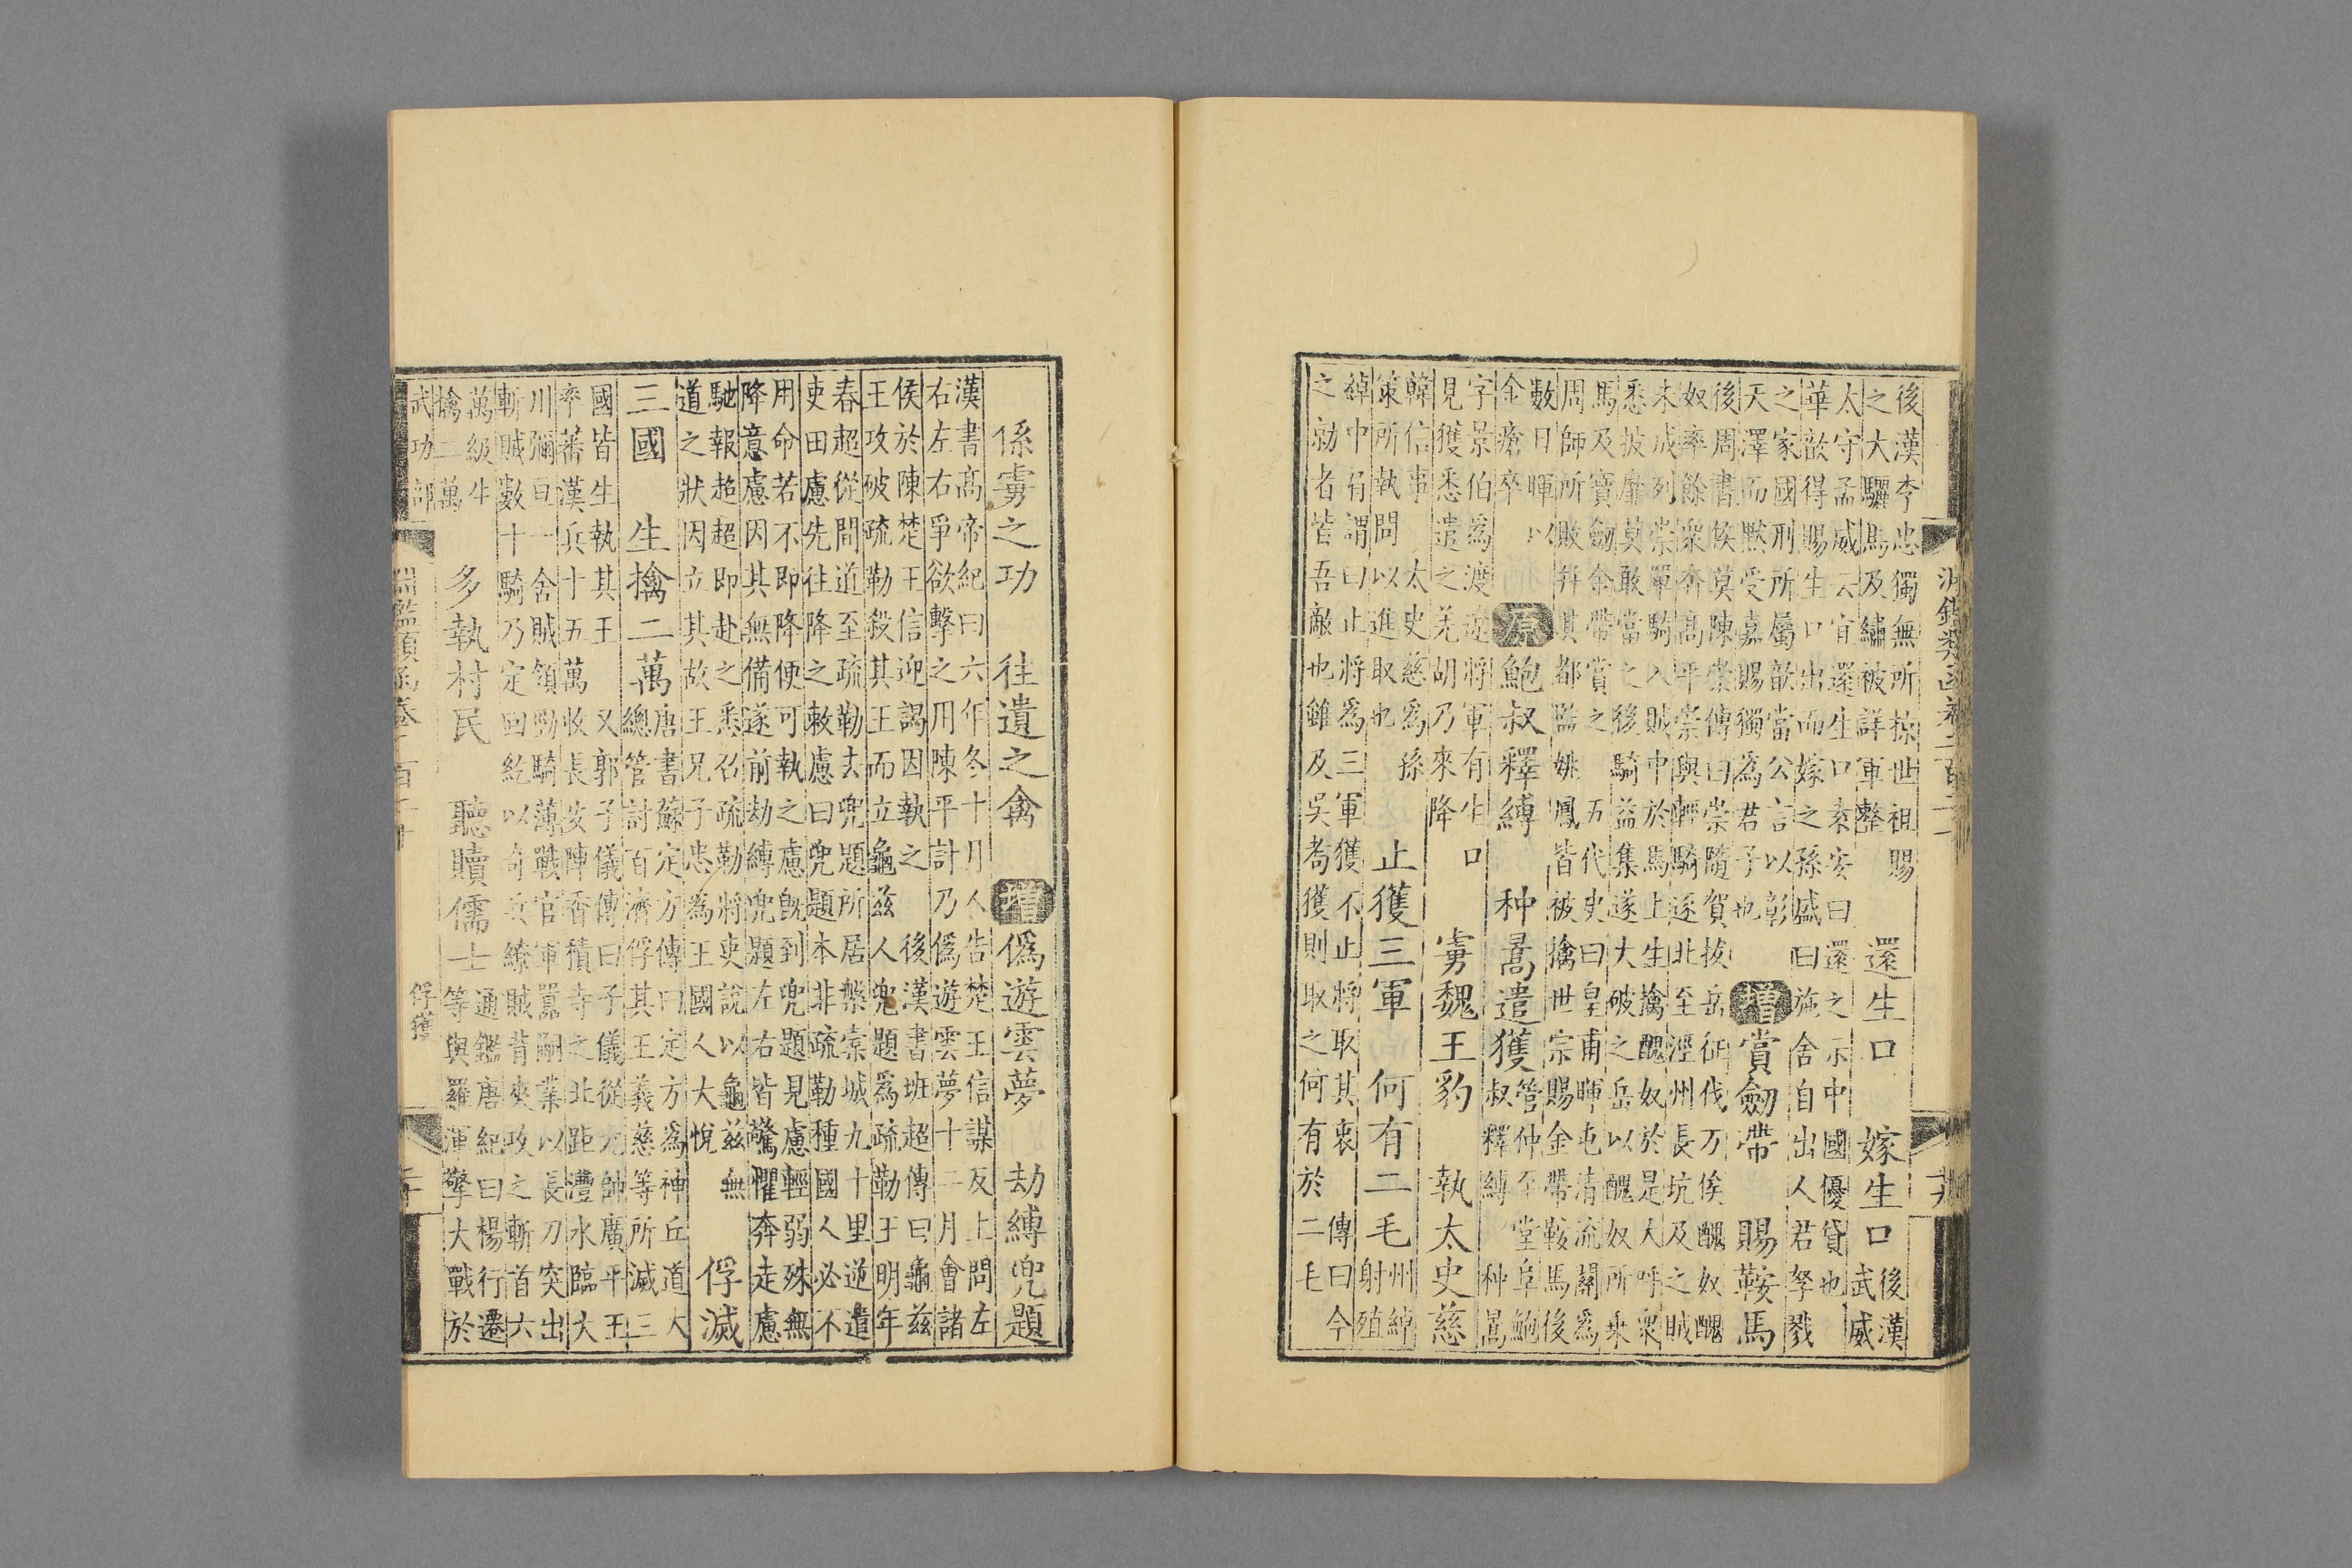 淵鑑類函卷二百二十
後漢李忠獨無所掠世祖賜
之大驪馬及繡被詳軍整
還生口　嫁生口
後漢
武威
太守孟威云宜還生口袁安曰還之示中國優貸也
華歆得賜生口出而嫁之孫盛曰旃舍自出人君孥戮
之家國刑所屬歆當公言以彰
天澤而默受嘉賜獨為君子也
增賞劒帶　賜鞍馬
後周書侯莫陳崇傳曰崇隨賀拔岳征伐万俟醜奴醜
奴率餘衆奔高平崇與輕騎逐北至涇州長坑及之賊
未成列崇單騎入賊中於馬上生擒醜奴於是大呼衆
悉披靡莫敢當之後騎益集遂大破之岳以醜奴所乘
馬及寶劒金帶賞之　五代史曰皇甫暉屯清流關為
周師所敗并其都監姚鳳皆被擒世宗賜金帶鞍馬後
數日暉以
金瘡卒
原鮑叔釋縛　种暠遣獲
管仲至堂阜鮑
叔釋縛　种暠
字景伯為渡遼將軍有生口
見獲悉遣之羌胡乃來降
虜魏王豹　執太史慈
韓信事　太史慈為孫
策所執問以進取也
止獲三軍　何有二毛
州綽
射殖
綽中肩謂曰止將為三軍獲不止將取其衷　傳曰今
之勍者皆吾敵也雖及吳耇獲則取之何有於二毛
係虜之功　往遺之禽　增偽遊雲夢　劫縛兜題
漢書高帝紀曰六年冬十月人告楚王信謀反上問左
右左右爭欲擊之用陳平計乃偽遊雲夢十二月會諸
侯於陳楚王信迎謁因執之　後漢書班超傳曰龜兹
王攻破疏勒殺其王而立龜兹人兜題為疏勒王明年
春超從間道至疏勒去兜題所居槃橐城九十里逆遣
吏田慮先往降之敕慮曰兜題本非疏勒種國人必不
用命若不即降便可執之慮既到兜題見慮輕弱殊無
降意慮因其無備遂前劫縛兜題左右皆驚懼奔走慮
馳報超超即赴之悉召疏勒將吏說以龜兹無
道之狀因立其故王兄子忠為王國人大悅
俘滅
三國　生擒二萬
唐書蘇定方傳曰定方為神丘道大
總管討百濟俘其王義慈等所滅三
國皆生執其王　又郭子儀傳曰子儀從元帥廣平王
率蕃漢兵十五萬收長安陣香積寺之北距灃水臨大
川彌亘一舍賊領勁騎薄戰官軍囂嗣業以長刀突出
斬賊數十騎乃定回紇以奇兵繚賊背夾攻之斬首六
萬級生
擒二萬
多執村民　聽贖儒士
通鑑唐紀曰楊行遷
等與羅渾擎大戰於
武功部
俘獲